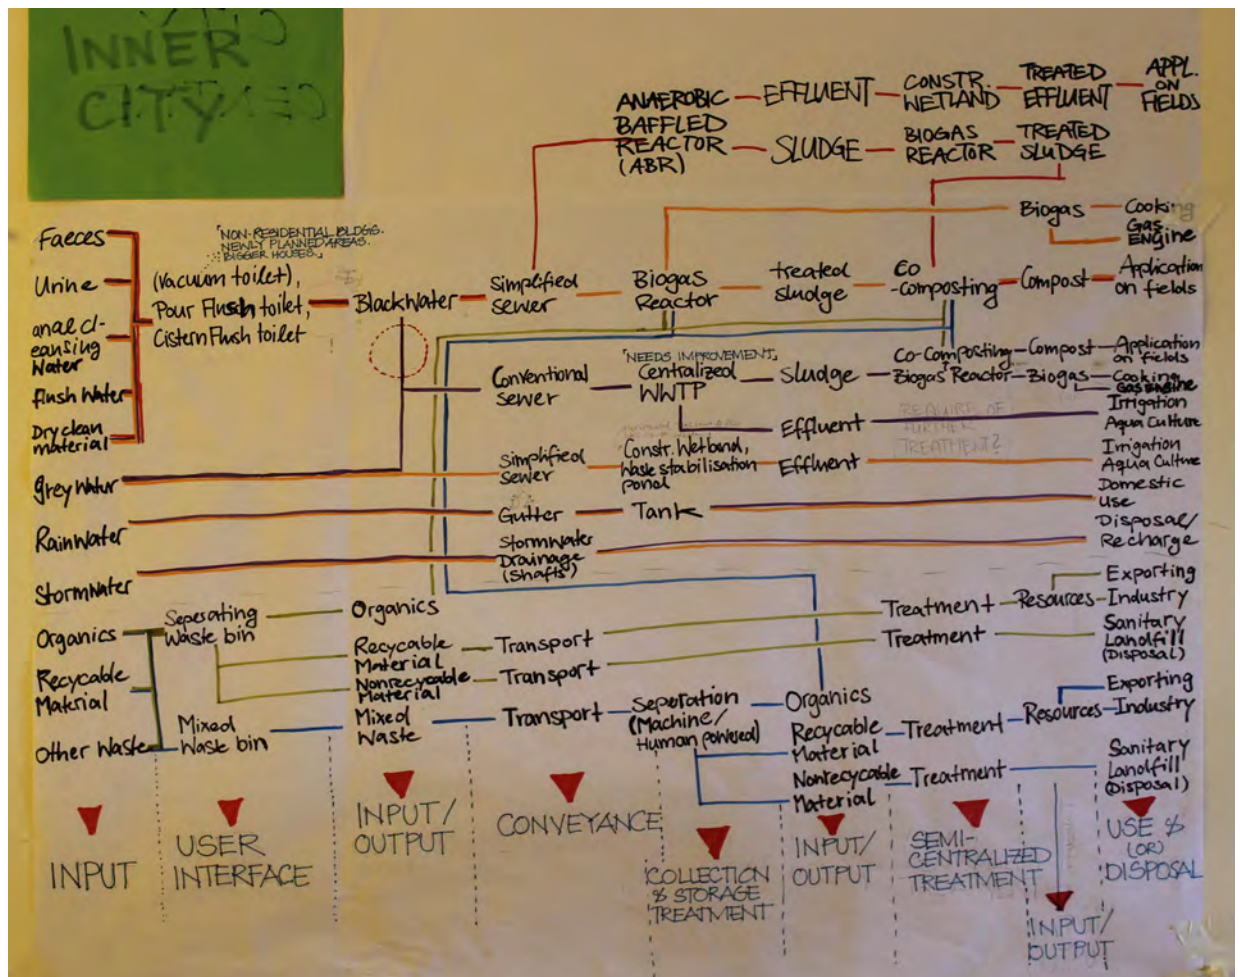 INNER
CITY
ANAEROBIC
BAFFLED
REACTOR
(ABR)
EFFLUENT
CONSTR.
WETLAND
TREATED
EFFLUENT
APPL.
ON
FIELDS
SLUDGE
BIOGAS
REACTOR
TREATED
SLUDGE
Biogas
Cooking
Gas
ENGINE
Faeces
Urine
anal cl-
eansing
Water
flush Water
Dry clean
material
"NON-RESIDENTIAL BLDGS.
NEWLY PLANNED AREAS.
BIGGER HOUSES."
(Vacuum toilet),
Pour Flush toilet,
Cistern Flush toilet
BlackWater
Simplified
sewer
Biogas
Reactor
treated
sludge
Co
-Composting
Compost
Application
on fields
Conventional
sewer
"NEEDS IMPROVEMENT"
Centralized
WWTP
Sludge
Co-Composting
Biogas Reactor
Compost
Biogas
Application
on fields
Cooking
Gas ENGINE
Effluent
REQUIRE OF
FURTHER
TREATMENT?
Irrigation
Aqua Culture
grey Water
Simplified
Sewer
Constr. Wetland,
Waste stabilisation
pond
Effluent
Irrigation
Aqua Culture
RainWater
Gutter
Tank
Domestic
Use
StormWater
StormWater
Drainage
(Shafts)
Disposal/
Recharge
Organics
Seperating
Waste bin
Organics
Treatment
Resources
Exporting
Industry
Recycable
Material
Recycable
Material
Transport
Nonrecycable
Material
Transport
Treatment
Sanitary
Landfill
(Disposal)
Other Waste
Mixed
Waste bin
Mixed
Waste
Transport
Seperation
(Machine/
Human powered)
Organics
Recycable
Material
Treatment
Resources
Exporting
Industry
Nonrecycable
Material
Treatment
Sanitary
Landfill
(Disposal)
INPUT
USER
INTERFACE
INPUT/
OUTPUT
CONVEYANCE
COLLECTION
& STORAGE
TREATMENT
INPUT/
OUTPUT
SEMI-
CENTRALIZED
TREATMENT
INPUT/
OUTPUT
USE &
(OR)
DISPOSAL